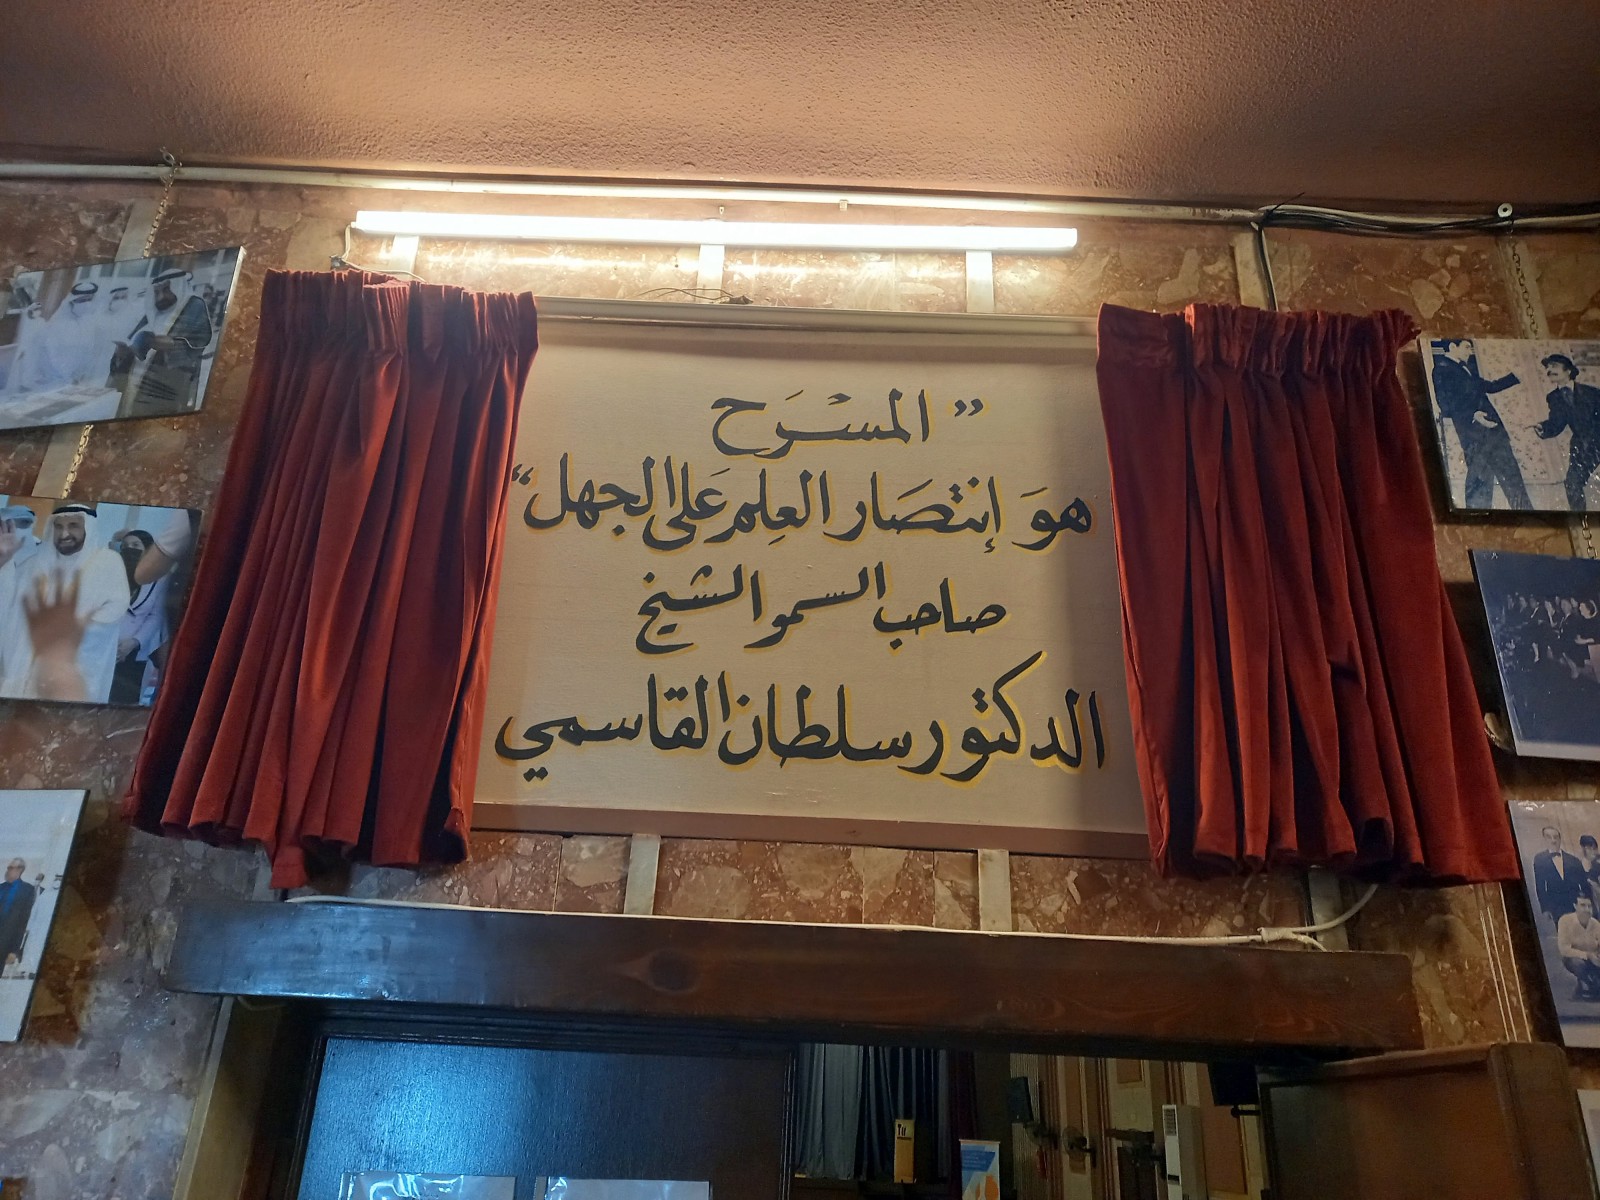 ” المسْرَح
هوَ إنتصَار العِلم عَلى الجهل “
صاحب السمو الشيخ
الدكتور سلطان القاسمي